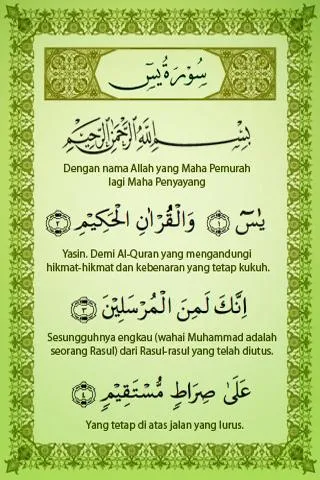 سُوْرَةُ يٰسٓ
بِسْمِ اللّٰهِ الرَّحْمٰنِ الرَّحِيْمِ
Dengan nama Allah yang Maha Pemurah
lagi Maha Penyayang
يٰسٓ ۝١ وَالْقُرْاٰنِ الْحَكِيْمِ ۝٢
Yasin. Demi Al-Quran yang mengandungi
hikmat-hikmat dan kebenaran yang tetap kukuh.
اِنَّكَ لَمِنَ الْمُرْسَلِيْنَ ۝٣
Sesungguhnya engkau (wahai Muhammad adalah
seorang Rasul) dari Rasul-rasul yang telah diutus.
عَلٰى صِرَاطٍ مُّسْتَقِيْمٍ ۝٤
Yang tetap di atas jalan yang lurus.